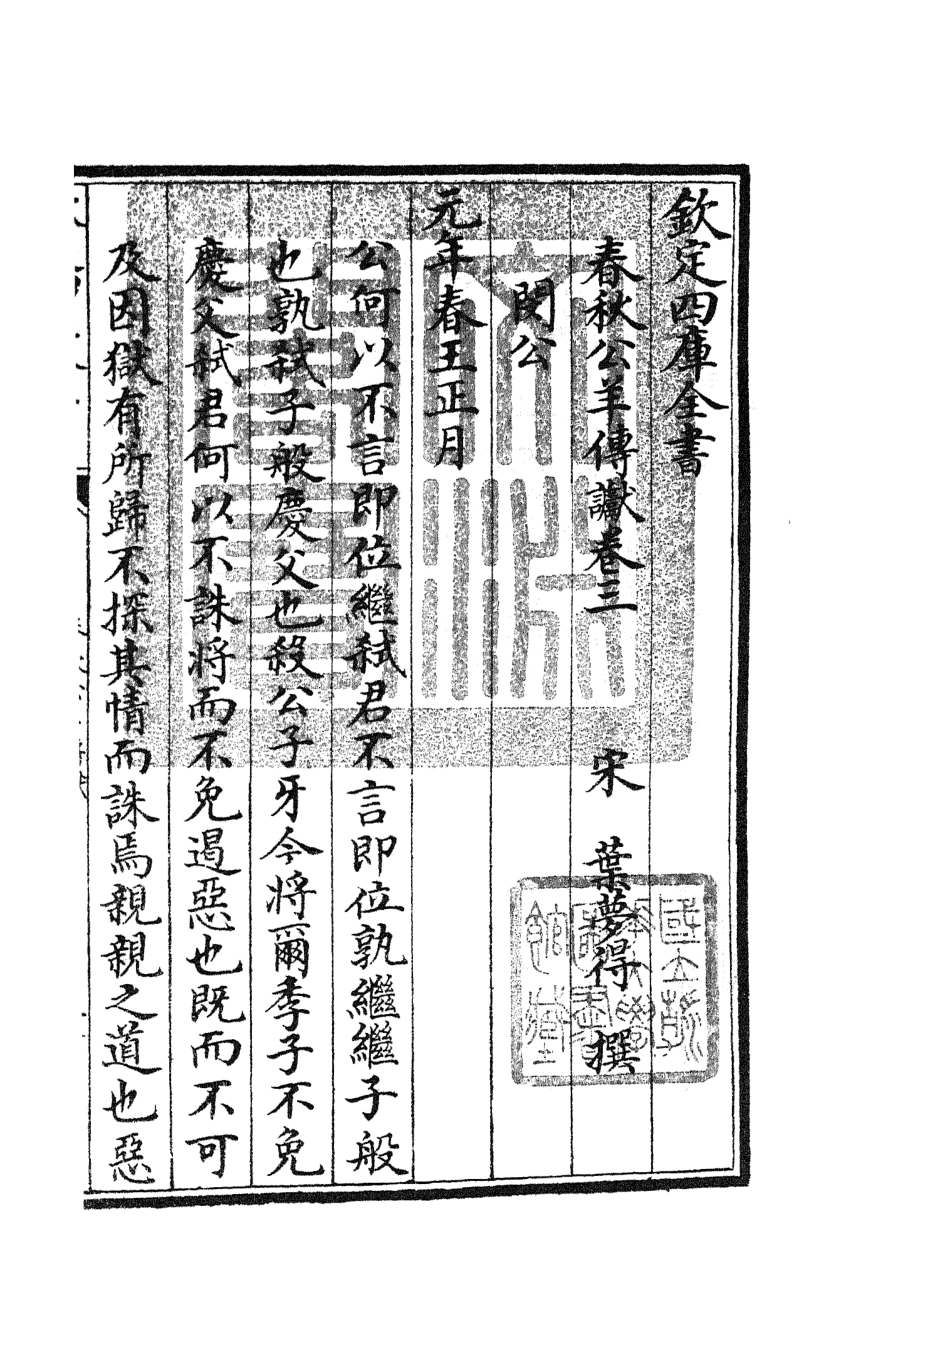 欽定四庫全書
春秋公羊傳讞卷三　宋　葉夢得　撰
閔公
元年春王正月
公何以不言即位繼弑君不言即位孰繼繼子般
也孰弑子般慶父也殺公子牙今將爾季子不免
慶父弑君何以不誅將而不免遏惡也既而不可
及因獄有所歸不探其情而誅焉親親之道也惡